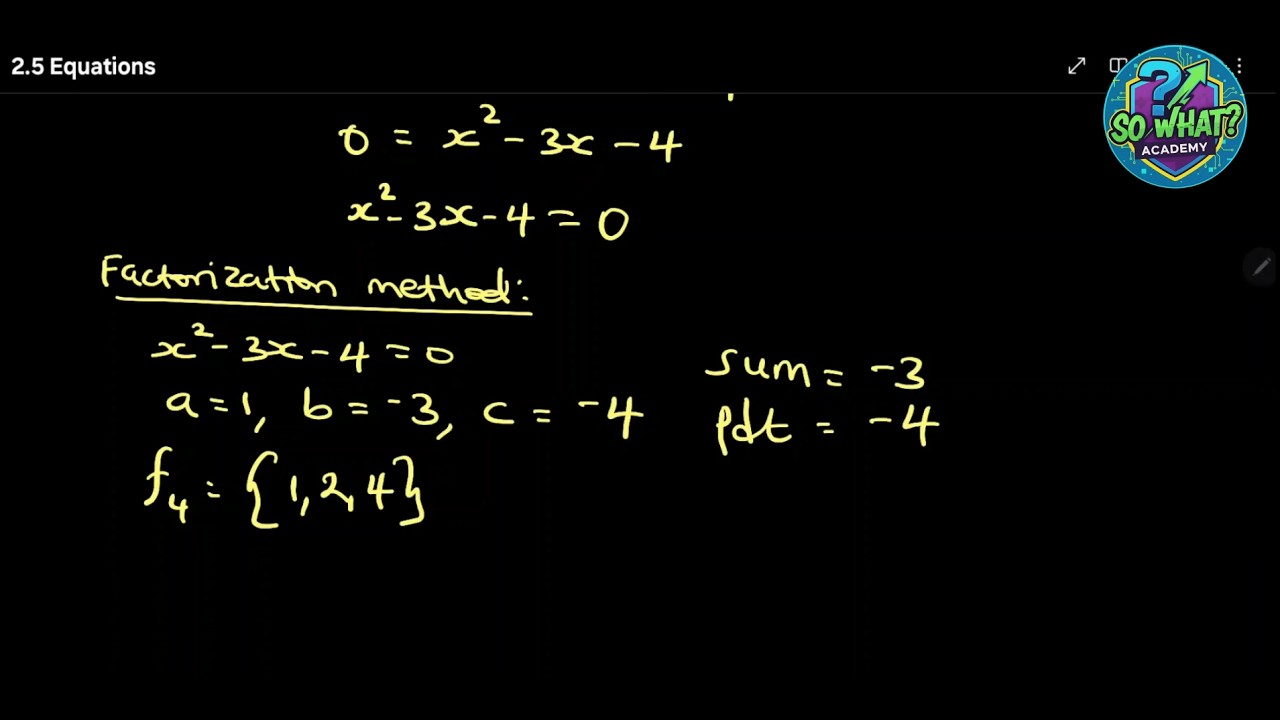 2.5 Equations
? SO WHAT? ACADEMY
0 = x² - 3x - 4
x² - 3x - 4 = 0
Factorization method:
x² - 3x - 4 = 0
sum = -3
a = 1, b = -3, c = -4
pdt = -4
f₄ = {1, 2, 4}